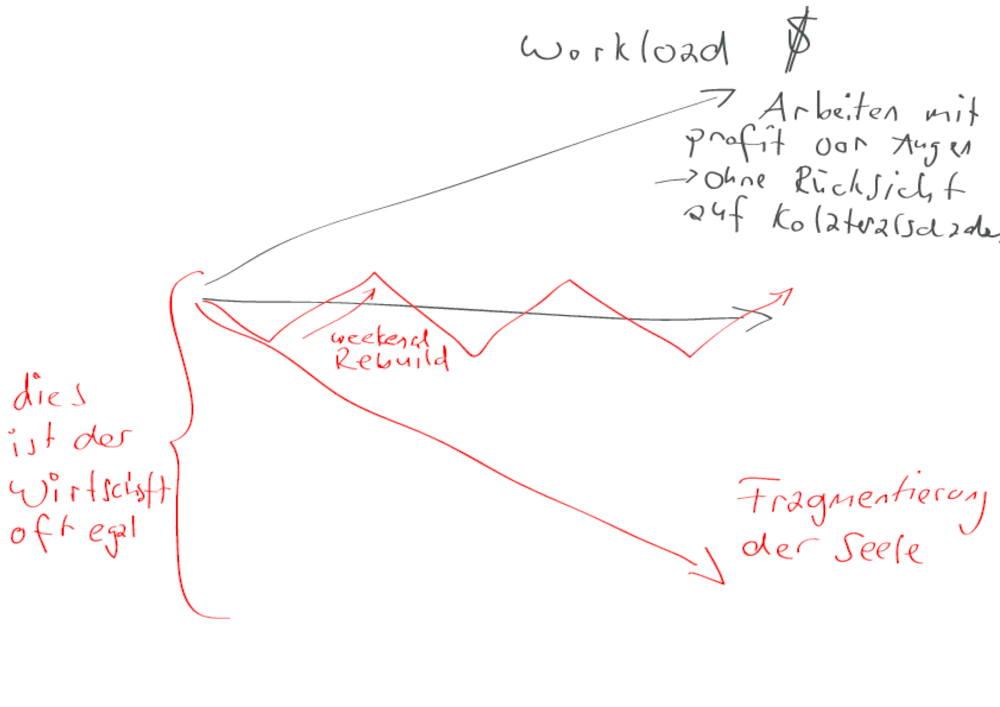 Workload $
Arbeiten mit
profit vor Augen
→ ohne Rücksicht
auf Kolateralschäden
weekend
Rebuild
dies
ist der
Wirtschaft
oft egal
Fragmentierung
der Seele